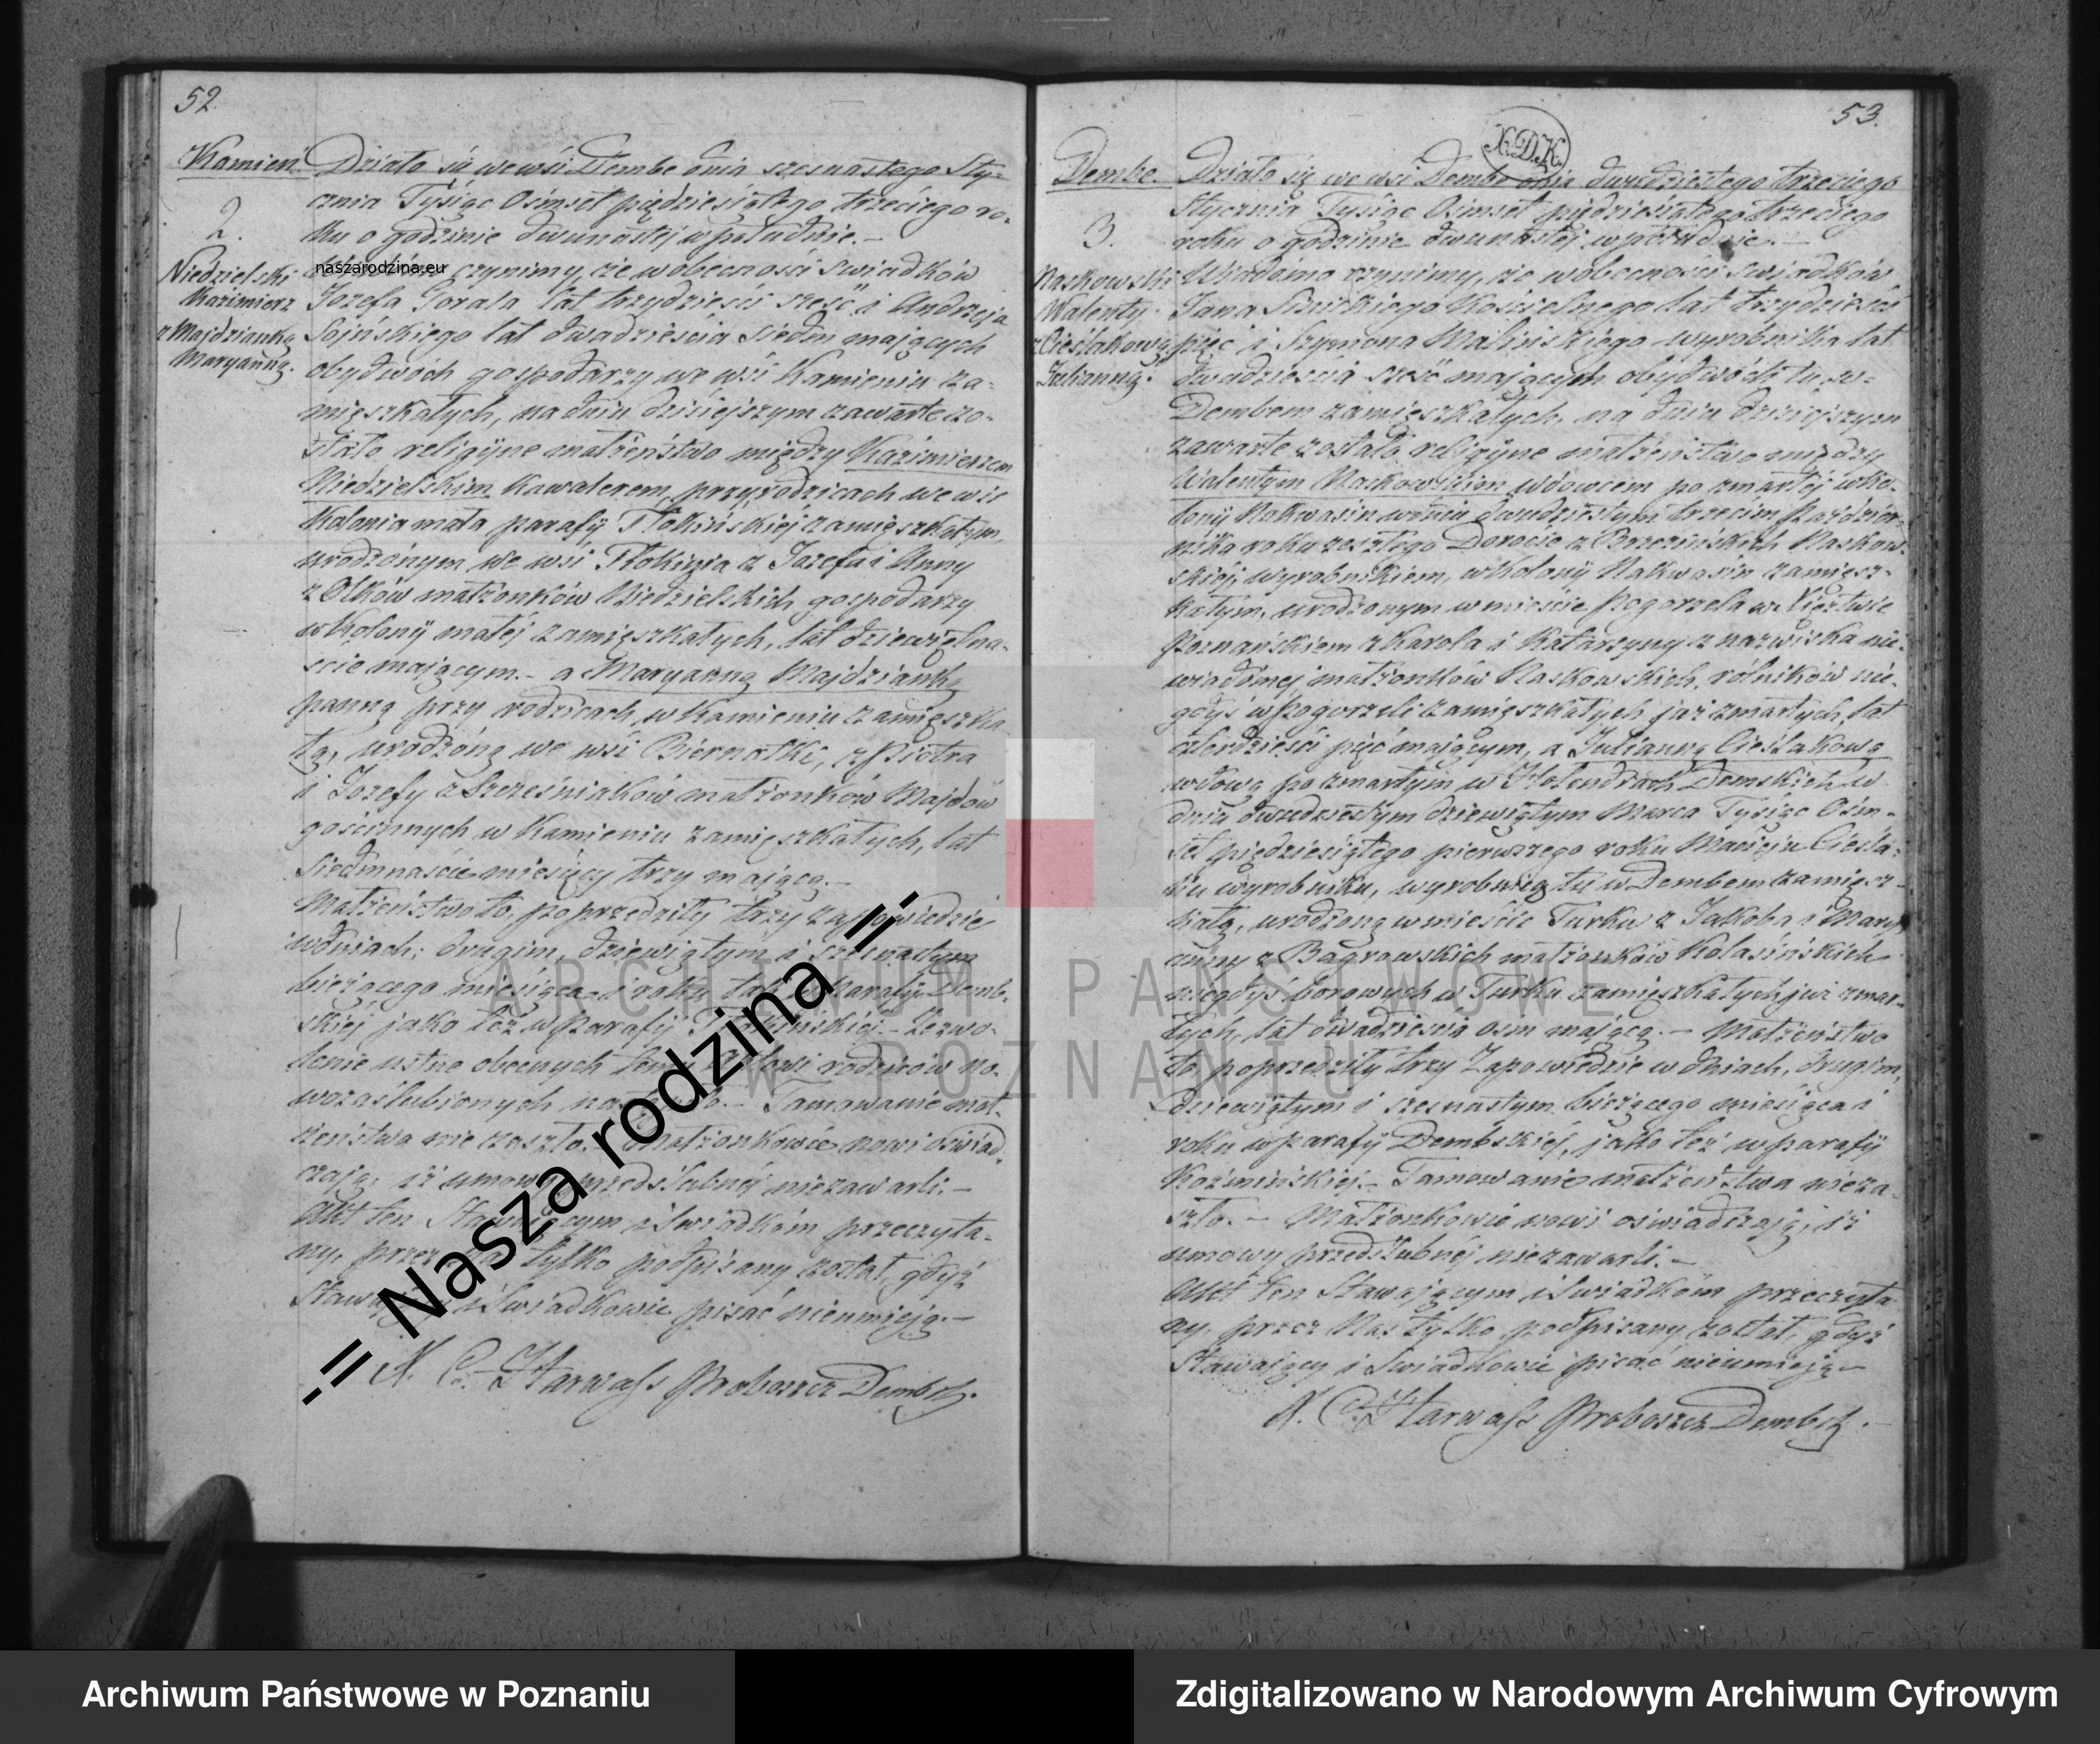 52.
Kamień.
2.
Niedzielski
Kazimierz
z Majdzianką
Maryanną.
Działo się we wsi Dembe dnia szesnastego Sty-
cznia Tysiąc Ośmset pięździesiątego trzeciego ro-
ku o godzinie dwunastej w południe.-
naszarodzina.eu
czynimy, że w obecności świadków
Jozefa Gorala lat trzydzieści sześć i Andrzeja
lat dwadzieścia siedm mających
obydwóch gospodarzy we wsi Kamieniu za-
mięszkałych, na dniu dzisiejszym zawarte zo-
stało religijne małżeństwo między Kazimierzem
Niedzielskim kawalerem, przy rodzicach we wsi
Kolonia mała parafij Tłokińskiéj zamięszkałym,
urodzonym we wsi Tłokinia z Jozefa i Anny
z Olków małżonków Niedzielskich gospodarzy
w Kolonij małej zamięszkałych, lat dziewiętna-
ście mającym.- a Maryanną Majdzianką
panną przy rodzicach w Kamieniu zamięszka
łą, urodzoną we wsi Biernatki, z Piotra
i Jozefy z Szcześniaków małżonków Majdów
gościnnych w Kamieniu zamięszkałych, lat
siedmnaście miesięcy trzy mającą.-
Małżeństwo to, poprzedziły trzy zapowiedzie
w dniach: drugim, dziewiątym i szesnastym
bieżącego miesiąca i roku tak w Parafij Demb-
skiej jako też w Parafij Tłokińskiej.- Zezwo-
lenie ustne obecnych temu Aktowi rodziców no-
wozaślubionych nastąpiło.- Tamowanie mał-
żeństwa nie zaszło.- Małżonkowie nowi oświad-
czają, iż umowy przedślubnéj niezawarli.-
Akt ten Stawającym i Swiadkom przeczyta-
ny, przez Nas tylko podpisany został, gdyż
Stawający i Swiadkowie pisać nieumieją.-
X. C. Harwass Proboszcz Dembsk.
53.
X.D.K.
Dembe.
3.
Raskowski
Walenty
z Cieślakową
Julianną.
Działo się we wsi Dembe dnia dwudziestego trzeciego
Stycznia Tysiąc Ośmset pięździesiątego trzeciego
roku o godzinie dwunastéj w południe.-
Wiadomo czynimy, że w obecności swiadków
Jana Kościelnego lat trzydzieści
pięć i Szymona Malińskiego wyrobnika lat
dwadzieścia sześć mających obydwóch tu w-
Dembem zamięszkałych, na dniu dzisiejszym
zawarte zostało religijne małżeństwo między
Walentym Raskowskim wdowcem po zmarłéj w Ko-
lonij Nakwasin w dniu dwudziestym trzecim Paździer-
nika roku zeszłego Dorocie z Brzezińskich Raskow-
skiéj, wyrobnikiem, w Kolonij Nakwasin zamięsz-
kałym, urodzonym w mieście Pogorzela w Xięztwie
Poznańskiem z Karola i Katarzyny z nazwiska nie-
wiadomej małżonków Raskowskich, rolników nie-
gdyś w Pogorzeli zamięszkałych już zmarłych, lat
czterdzieści pięć mającym, a Julianną Cieślakową
wdową po zmarłym w Holendrach Dembskich w
dniu dwudziestym dziewiątym Marca Tysiąc Ośm-
set pięździesiątego pierwszego roku Macieju Cieśla-
ku wyrobniku, wyrobnicą tu w Dembem zamięsz-
kałą, urodzoną w mieście Turku z Jakoba i Mary
anny z Bagrowskich małżonków Kolasińskich
niegdyś borowych w Turku zamięszkałych już zmar-
łych, lat dwadzieścia ośm mającą.- Małżeństwo
to poprzedziły trzy Zapowiedzie w dniach, drugim,
dziewiątym i szesnastym bieżącego miesiąca i
roku w parafij Dembskiéj, jako też w parafij
Koźmińskiéj.- Tamowanie małżeństwa nieza-
szło.- Małżonkowie nowi oświadczają, iż
umowy przedślubnéj niezawarli.-
Akt ten Stawającym i Swiadkom przeczyta
ny, przez Nas tylko podpisany został, gdyż
Stawający i Swiadkowie pisać nieumieją.-
X. C. Harwass Proboszcz Dembsk.
ARCHIWUM PAŃSTWOWE
W POZNANIU
.:= Nasza rodzina =:.
Archiwum Państwowe w Poznaniu
Zdigitalizowano w Narodowym Archiwum Cyfrowym